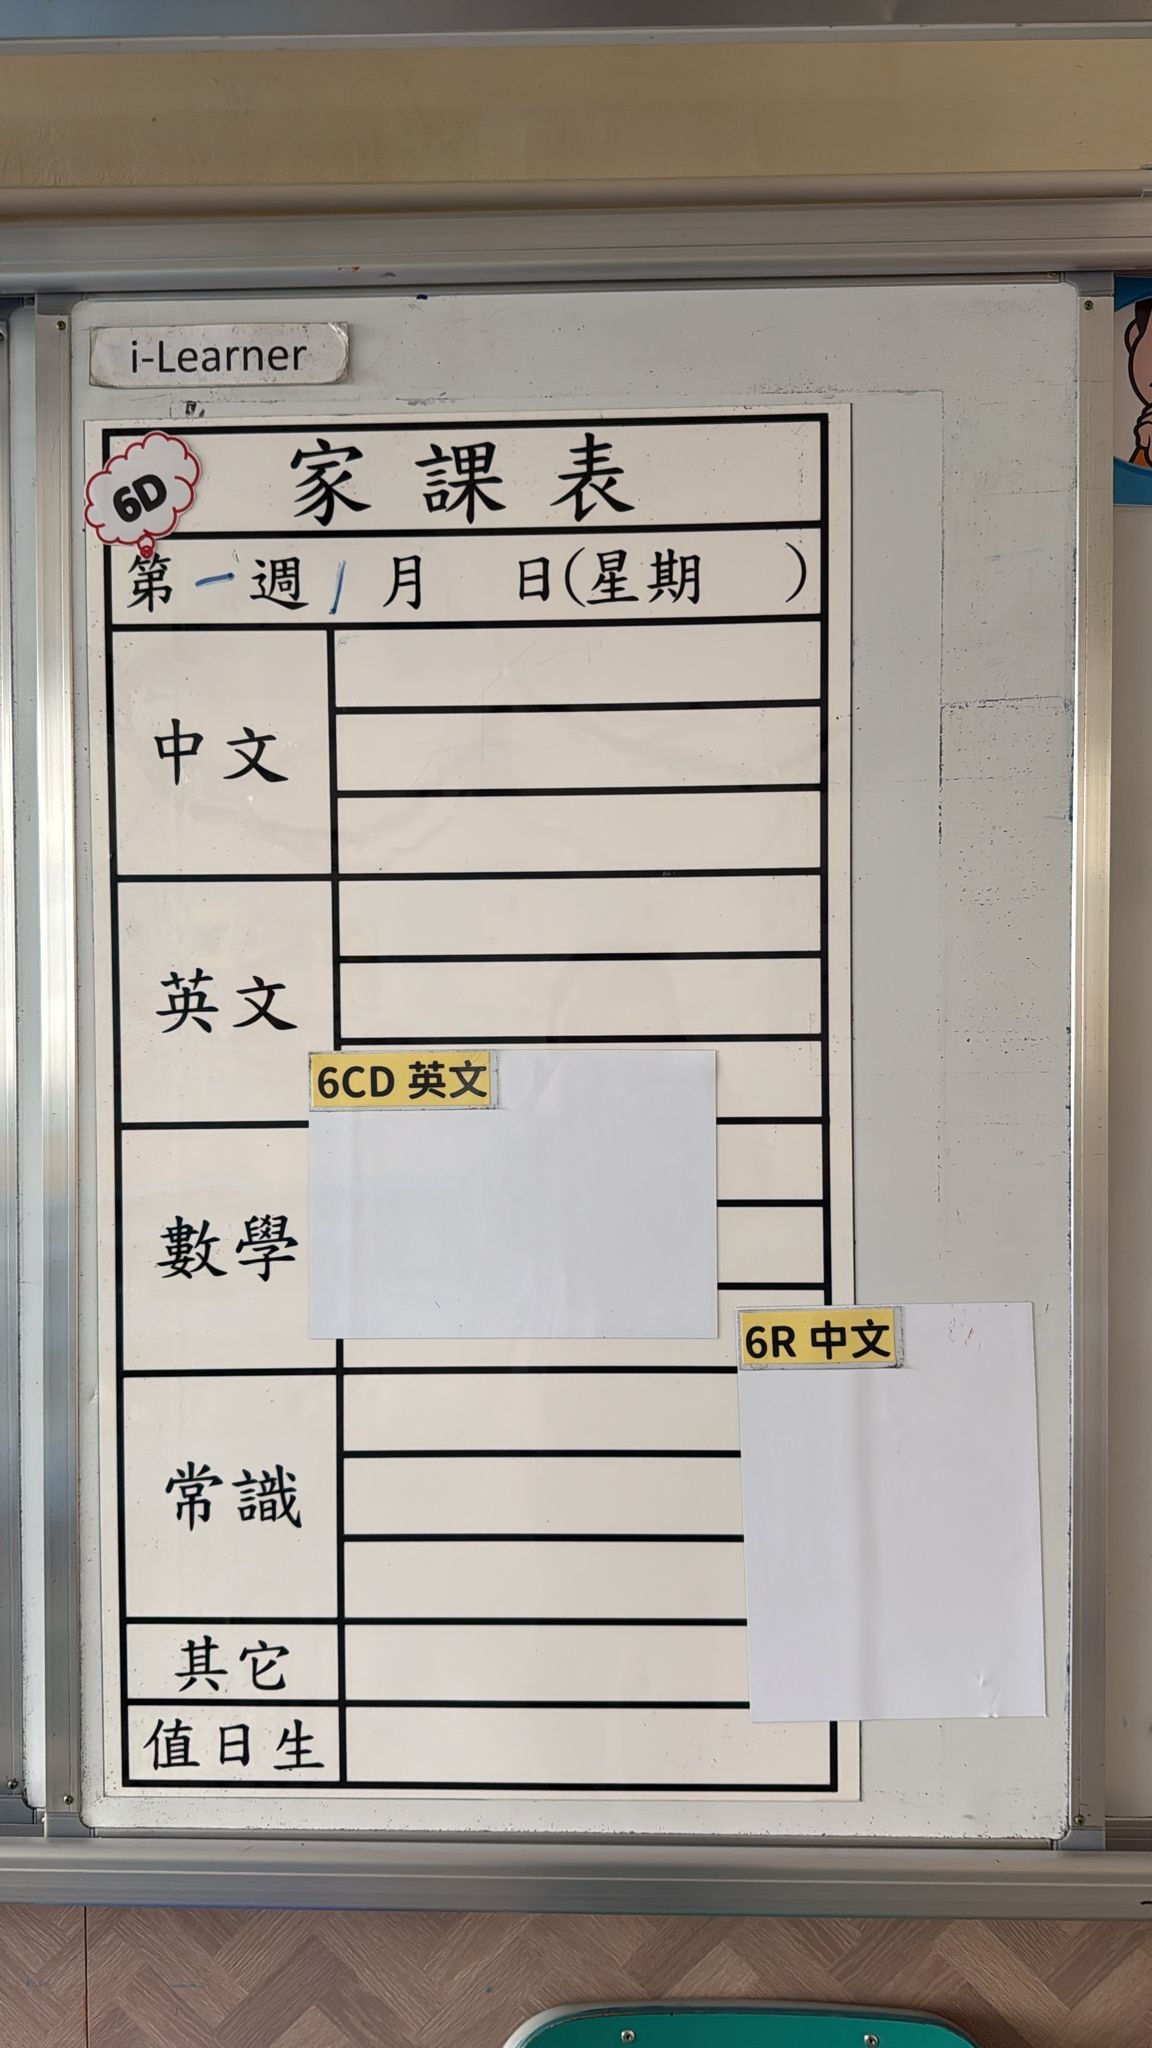 i-Learner
6D
家課表
第一週 / 月 日(星期 )
中文
英文
6CD 英文
數學
6R 中文
常識
其它
值日生